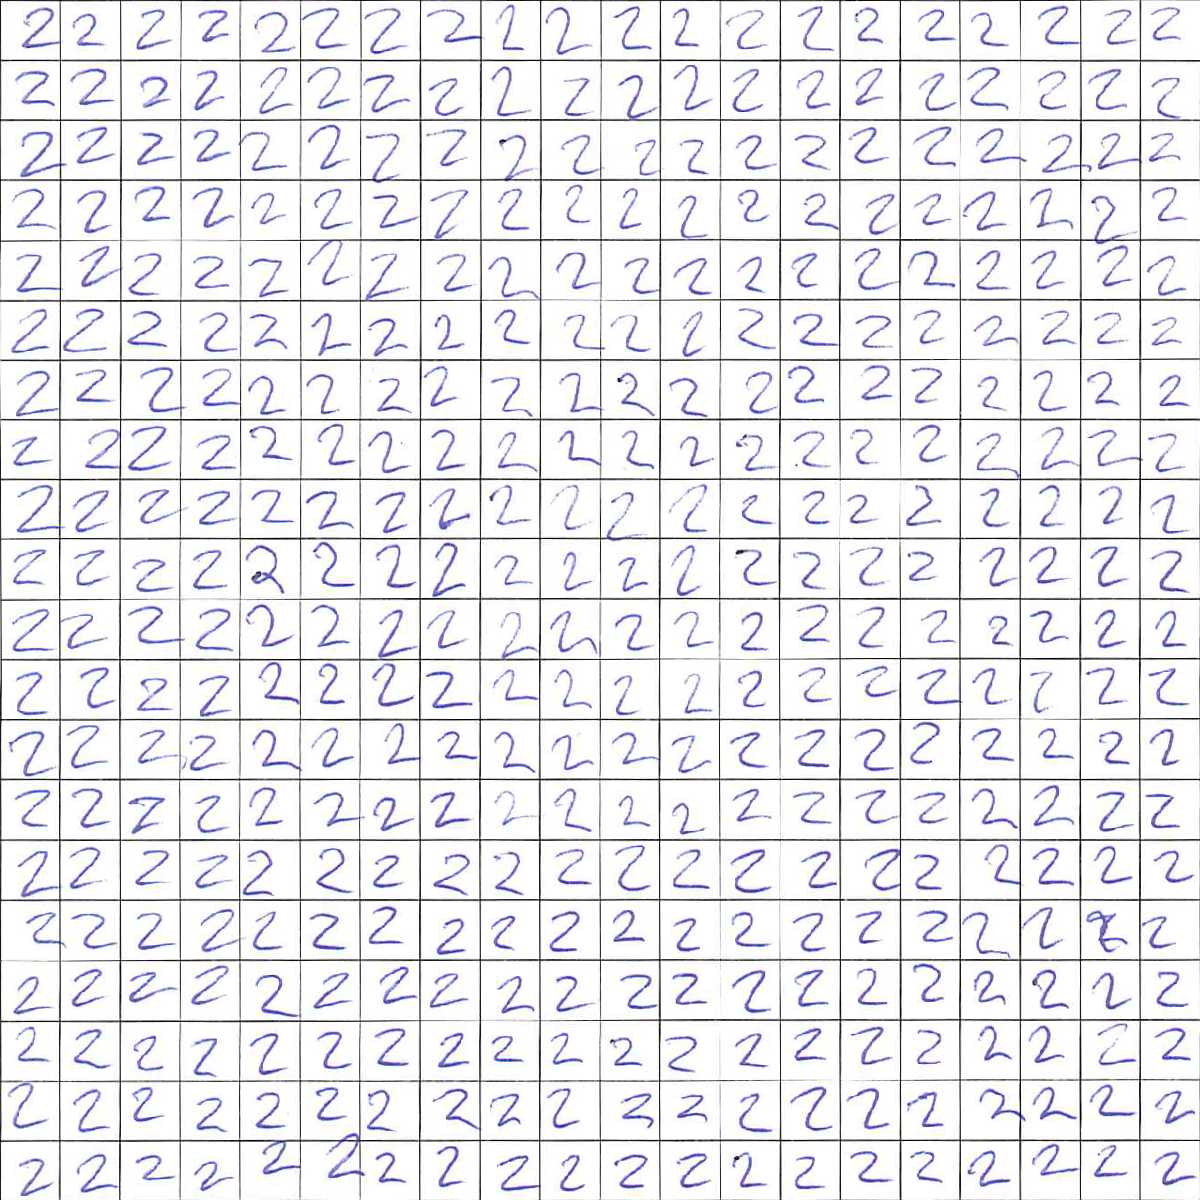 2 2 2 2 2 2 2 2 2 2 2 2 2 2 2 2 2 2 2 2
2 2 2 2 2 2 2 2 2 2 2 2 2 2 2 2 2 2 2 2
2 2 2 2 2 2 2 2 2 2 2 2 2 2 2 2 2 2 2 2
2 2 2 2 2 2 2 2 2 2 2 2 2 2 2 2 2 2 2 2
2 2 2 2 2 2 2 2 2 2 2 2 2 2 2 2 2 2 2 2
2 2 2 2 2 2 2 2 2 2 2 2 2 2 2 2 2 2 2 2
2 2 2 2 2 2 2 2 2 2 2 2 2 2 2 2 2 2 2 2
2 2 2 2 2 2 2 2 2 2 2 2 2 2 2 2 2 2 2 2
2 2 2 2 2 2 2 2 2 2 2 2 2 2 2 2 2 2 2 2
2 2 2 2 2 2 2 2 2 2 2 2 2 2 2 2 2 2 2 2
2 2 2 2 2 2 2 2 2 2 2 2 2 2 2 2 2 2 2 2
2 2 2 2 2 2 2 2 2 2 2 2 2 2 2 2 2 2 2 2
2 2 2 2 2 2 2 2 2 2 2 2 2 2 2 2 2 2 2 2
2 2 2 2 2 2 2 2 2 2 2 2 2 2 2 2 2 2 2 2
2 2 2 2 2 2 2 2 2 2 2 2 2 2 2 2 2 2 2 2
2 2 2 2 2 2 2 2 2 2 2 2 2 2 2 2 2 2 2
2 2 2 2 2 2 2 2 2 2 2 2 2 2 2 2 2 2 2 2
2 2 2 2 2 2 2 2 2 2 2 2 2 2 2 2 2 2 2 2
2 2 2 2 2 2 2 2 2 2 2 2 2 2 2 2 2 2 2 2
2 2 2 2 2 2 2 2 2 2 2 2 2 2 2 2 2 2 2 2